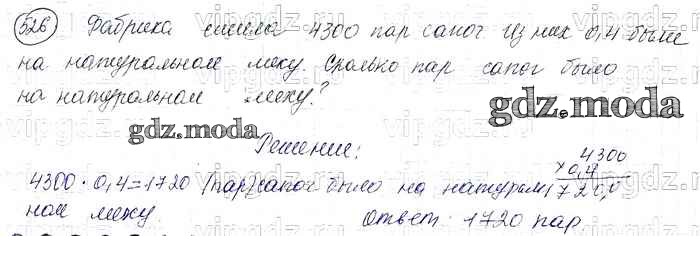 526 Фабрика сшила 4300 пар сапог Из них 0,4 были
на натуральном меху. Сколько пар сапог было
на натуральном меху?
gdz.moda
gdz.moda
Решение:
4300
× 0,4
1720,0
4300 · 0,4 = 1720 (пар) сапог было на натураль
ном меху.
Ответ: 1720 пар